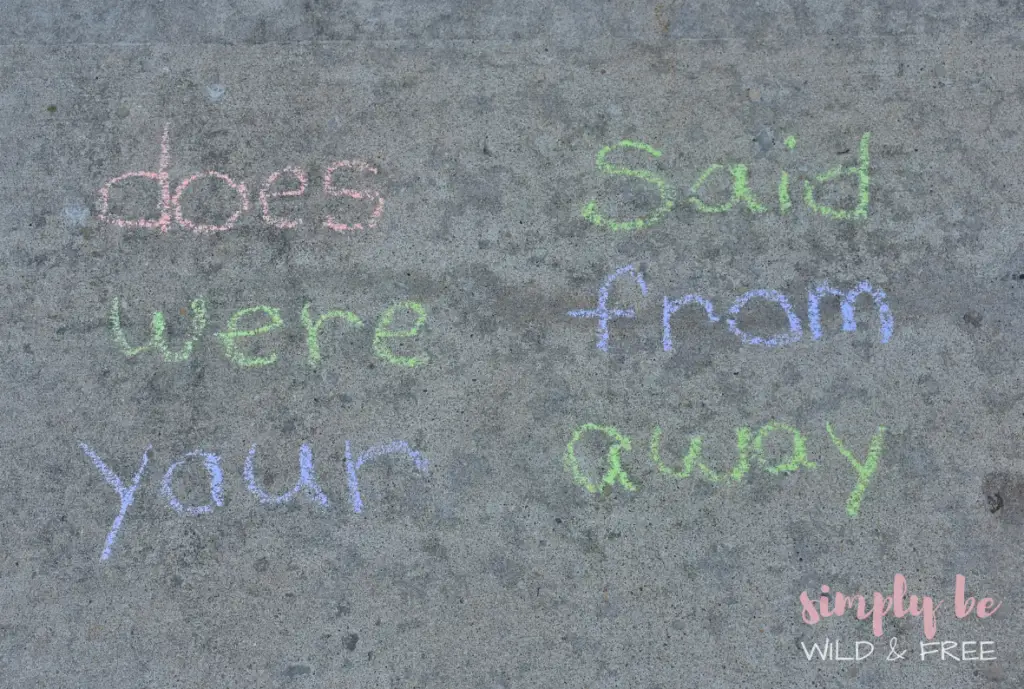 does said
were from
your away
simply be
WILD & FREE